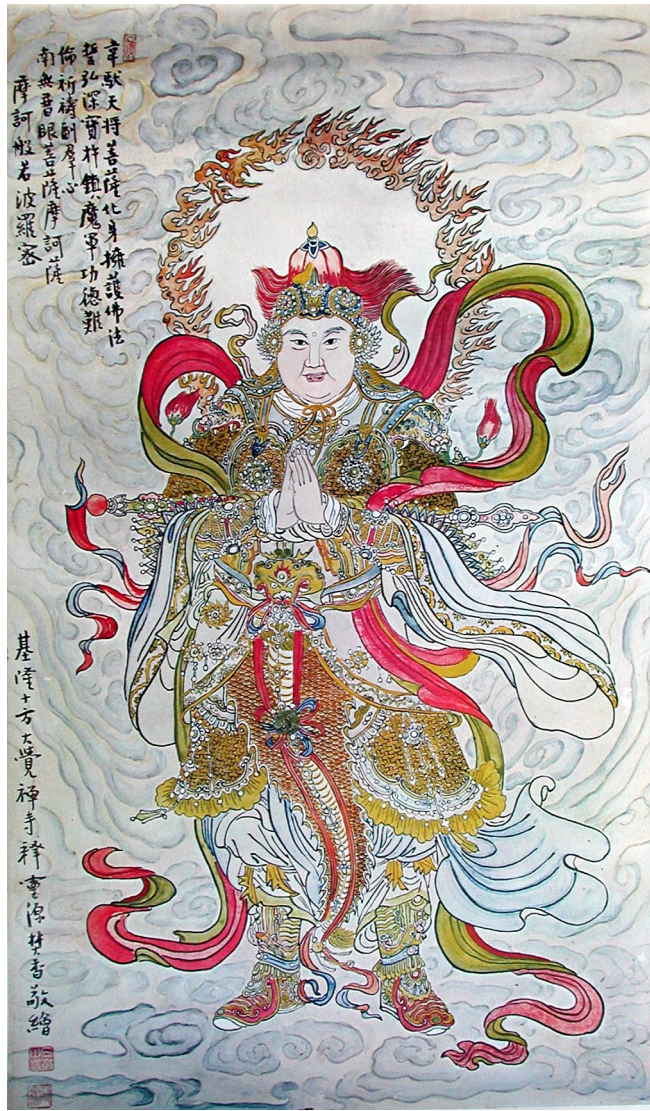 韋馱天将菩薩化身擁護佛法
誓弘深寶杵鎮魔軍功德難
倫祈禱副羣心
南無普眼菩薩摩訶薩
摩訶般若波羅密
基隆十方大覺禪寺釋靈源焚香敬繪